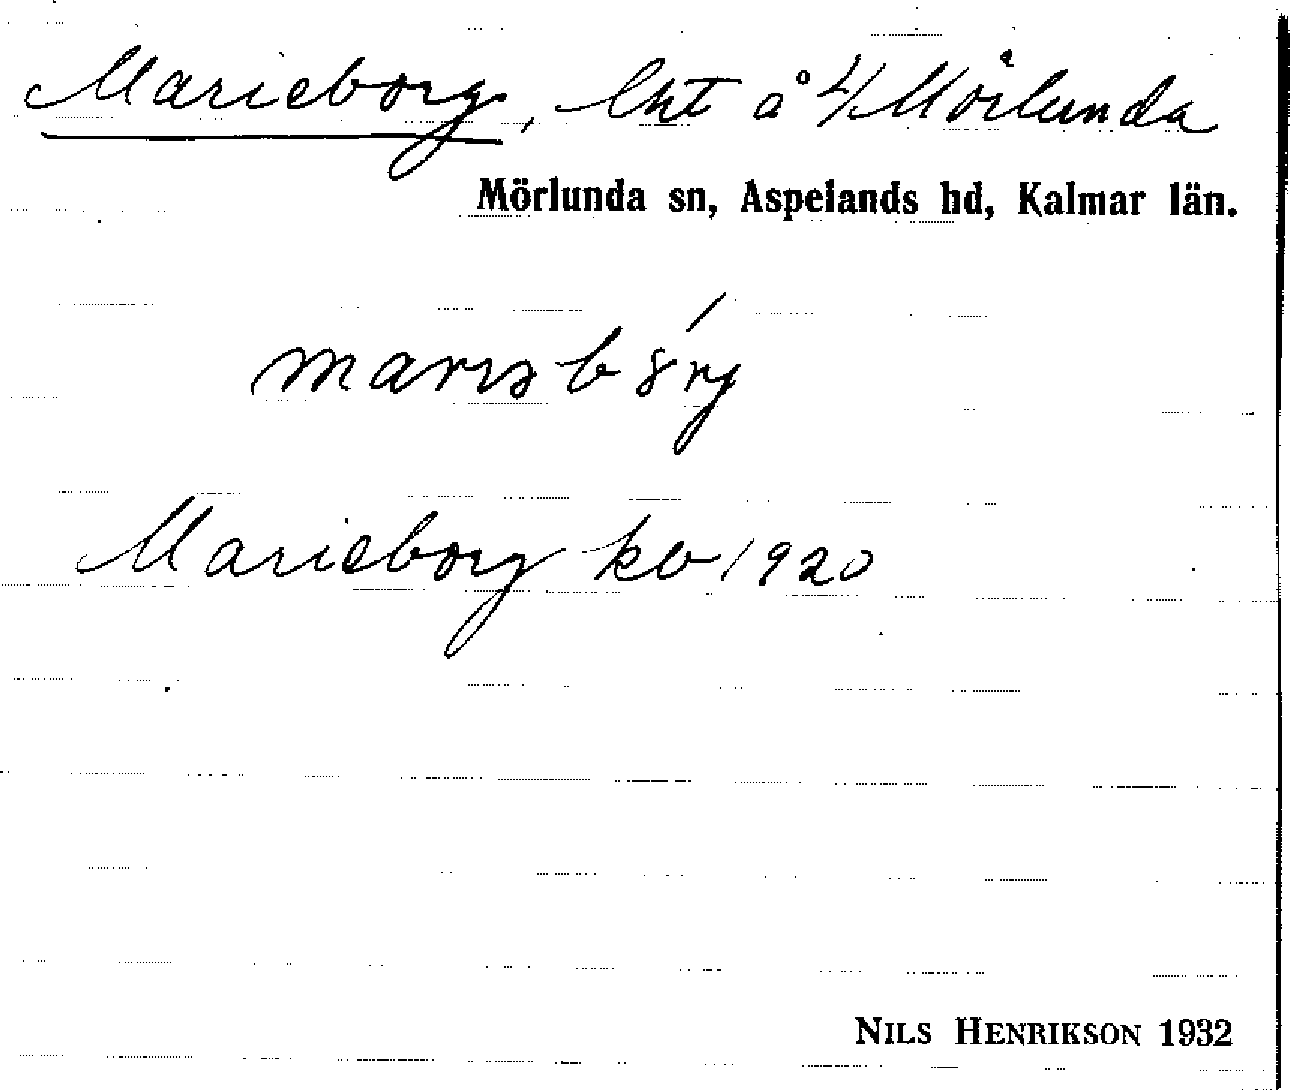 Marieborg, lht å 4/ Mörlunda
Mörlunda sn, Aspelands hd, Kalmar län.
Marieborg kb 1920
NILS HENRIKSON 1932